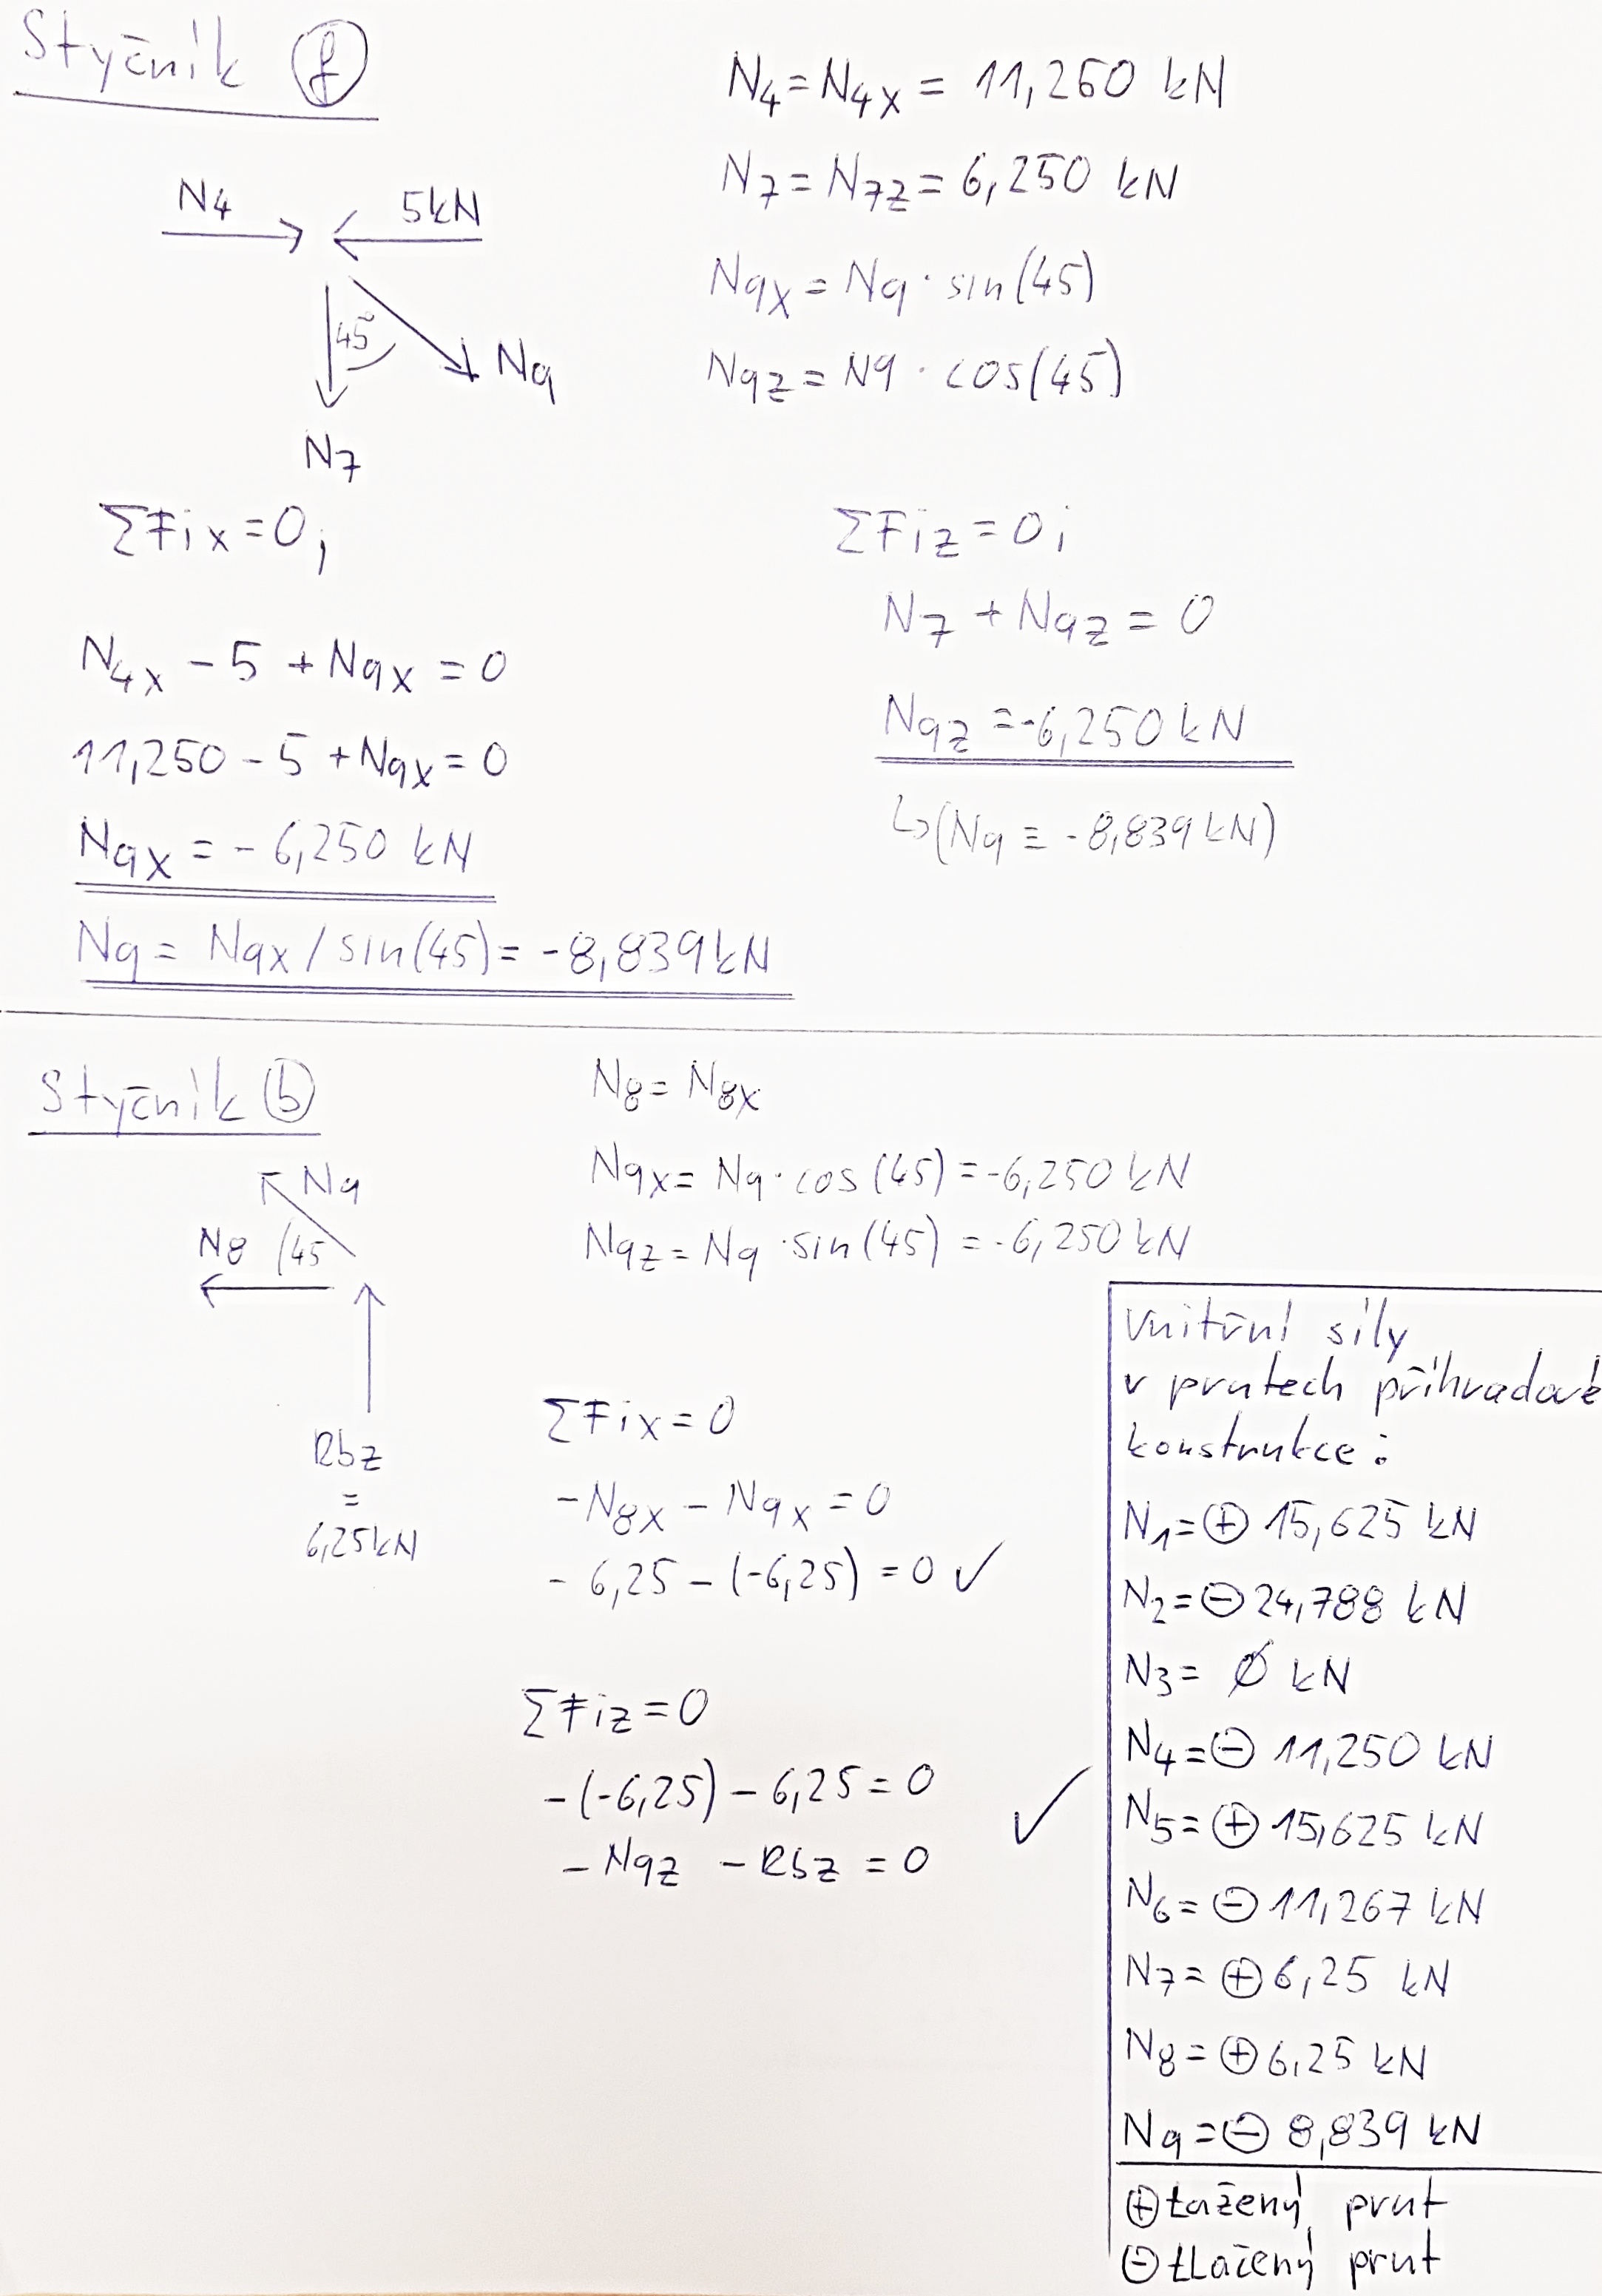 Styčník f
N4 = N4x = 11,250 kN
N7 = N7z = 6,250 kN
N9x = N9 · sin(45)
N9z = N9 · cos(45)
N4
5kN
45°
N9
N7
ΣFix = 0;
N4x - 5 + N9x = 0
11,250 - 5 + N9x = 0
N9x = - 6,250 kN
N9 = N9x / sin(45) = -8,839 kN
ΣFiz = 0;
N7 + N9z = 0
N9z = -6,250 kN
↳ (N9 = -8,839 kN)
Styčník b
N8 = N8x
N9x = N9 · cos (45) = -6,250 kN
N9z = N9 · sin (45) = -6,250 kN
N9
N8
45
Rbz
=
6,25kN
ΣFix = 0
-N8x - N9x = 0
- 6,25 - (-6,25) = 0 ✓
ΣFiz = 0
-(-6,25) - 6,25 = 0 ✓
- N9z - Rbz = 0
Vnitřní síly
v prutech příhradové
konstrukce:
N1 = ⊕ 15,625 kN
N2 = ⊖ 24,788 kN
N3 = Ø kN
N4 = ⊖ 11,250 kN
N5 = ⊕ 15,625 kN
N6 = ⊖ 11,267 kN
N7 = ⊕ 6,25 kN
N8 = ⊕ 6,25 kN
N9 = ⊖ 8,839 kN
⊕ tažený prut
⊖ tlačený prut